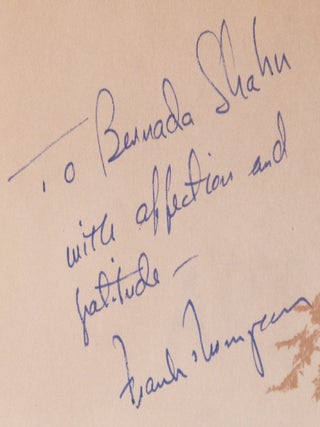 To Bernada Shahn
with affection and
gratitude —
Frank Thompson